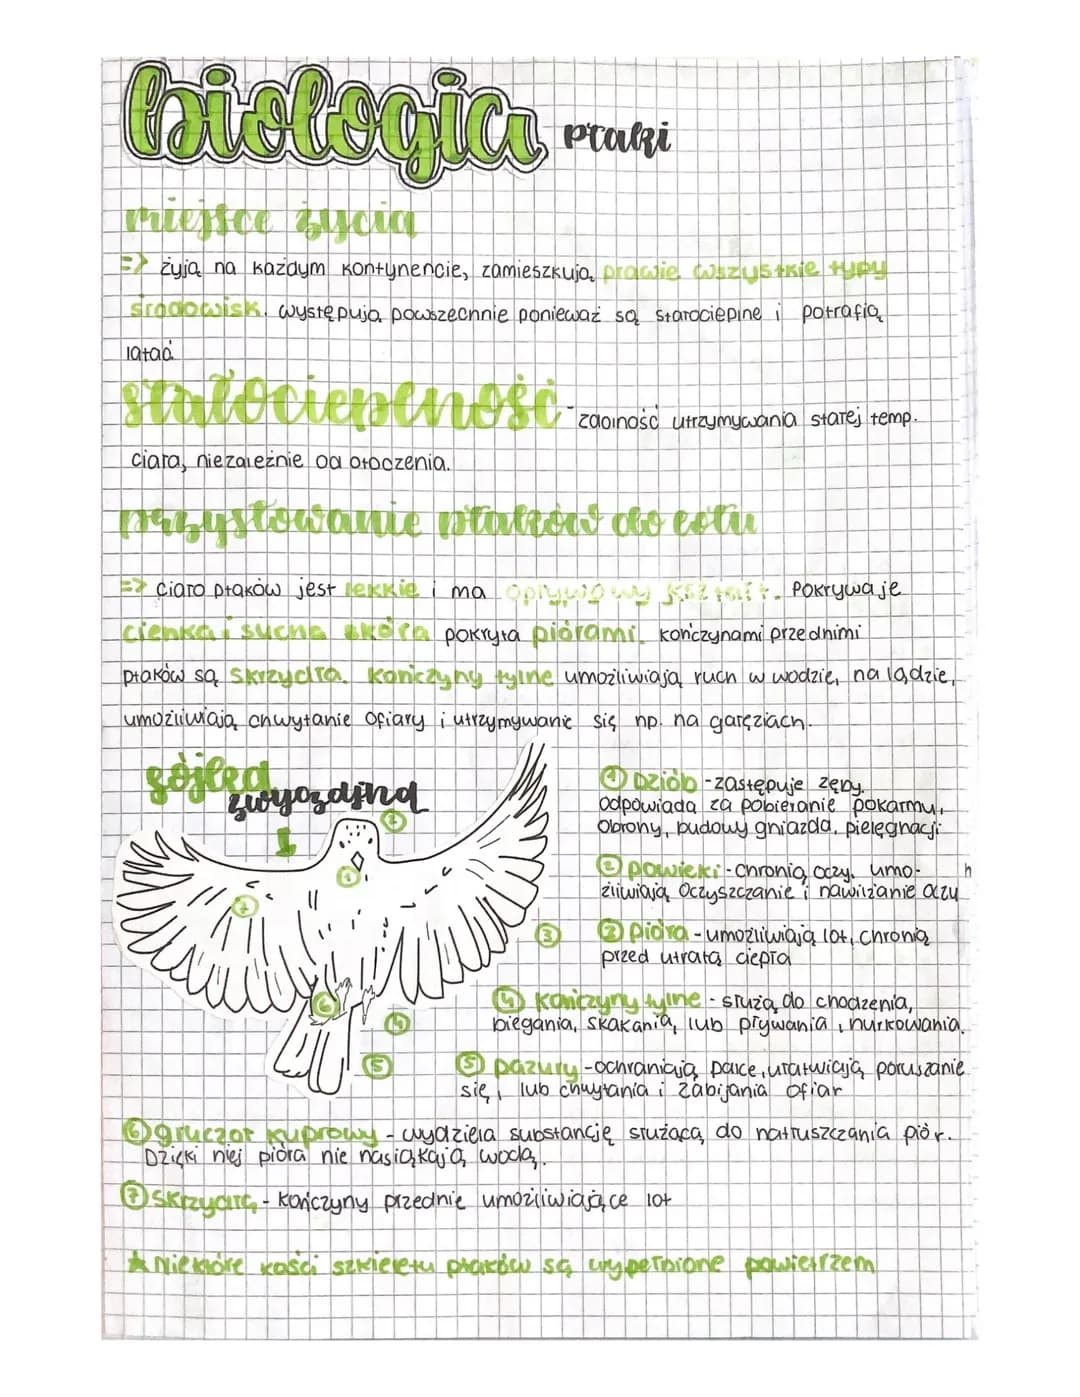 biologia ptaki
miejsce życia
=> żyją na każdym kontynencie, zamieszkują prawie wszystkie typy
środowisk. występują powszechnie ponieważ są stałocieplne i potrafią
latać
stałocieplność - zdolność utrzymywania stałej temp.
ciała, niezależnie od otoczenia.
przystowanie ptaków do lotu
=> ciało ptaków jest lekkie i ma opływowy kształt. Pokrywa je
cienka i sucha skóra pokryta piórami. kończynami przednimi
ptaków są skrzydła. Kończyny tylne umożliwiają ruch w wodzie, na lądzie,
umożliwiają chwytanie ofiary i utrzymywanie się np. na gałęziach.
sójka
zwyczajna
① Dziób - zastępuje zęby.
odpowiada za pobieranie pokarmu,
obrony, budowy gniazda, pielęgnacji
② powieki - chronią oczy, umo-
żliwiają oczyszczanie i nawilżanie oczu
③ pióra - umożliwiają lot, chronią
przed utratą ciepła
④ kończyny tylne - służą do chodzenia,
biegania, skakania, lub pływania, nurkowania.
⑤ pazury - ochraniają palce, ułatwiają poruszanie
się, lub chwytania i zabijania ofiar
⑥ gruczoł kuprowy - wydziela substancję służącą do natłuszczania piór.
Dzięki niej pióra nie nasiąkają wodą.
⑦ skrzydła - kończyny przednie umożliwiające lot
★ Niektóre kości szkieletu ptaków są wypełnione powietrzem